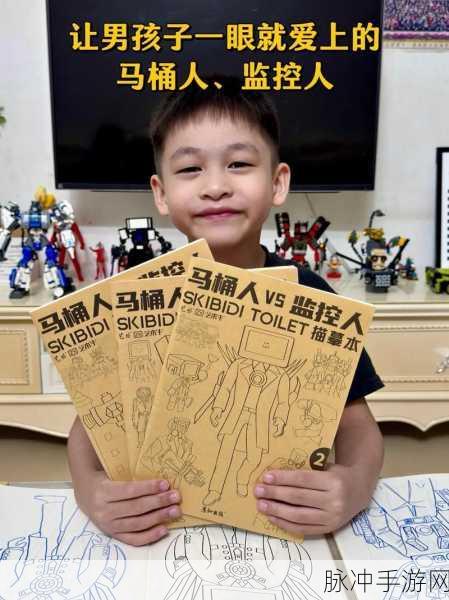 让男孩子一眼就爱上的
马桶人、监控人
马桶人
SKIBIDI
马桶人
SKIBIDI
马桶人 VS 监控人
SKIBIDI TOILET 描摹本
2
脉冲手游网